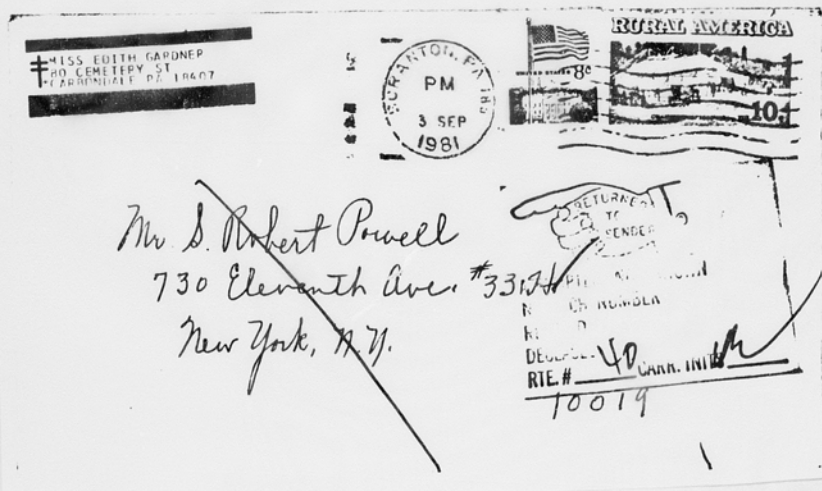 MISS EDITH GARDNER
80 CEMETERY ST
CARBONDALE PA 18407
SCRANTON, PA
PM
3 SEP
1981
UNITED STATES 8c
RURAL AMERICA
10c
Mr. S. Robert Powell
730 Eleventh Ave. #
New York, N.Y.
RETURNED
TO
SENDER
NUMBER
RTE. # 40 CARR. INIT
10019